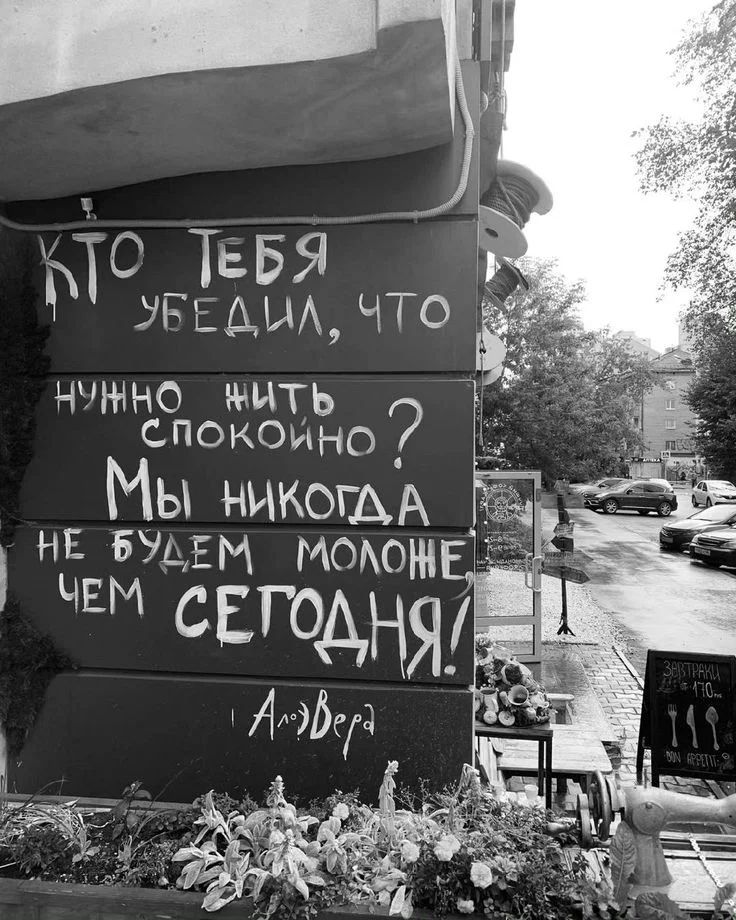 КТО ТЕБЯ
УБЕДИЛ, ЧТО
НУЖНО ЖИТЬ
СПОКОЙНО?
МЫ НИКОГДА
НЕ БУДЕМ МОЛОЖЕ,
ЧЕМ СЕГОДНЯ!
АлоэВера
ЗАВТРАКИ
ОТ 170
BON APPETIT